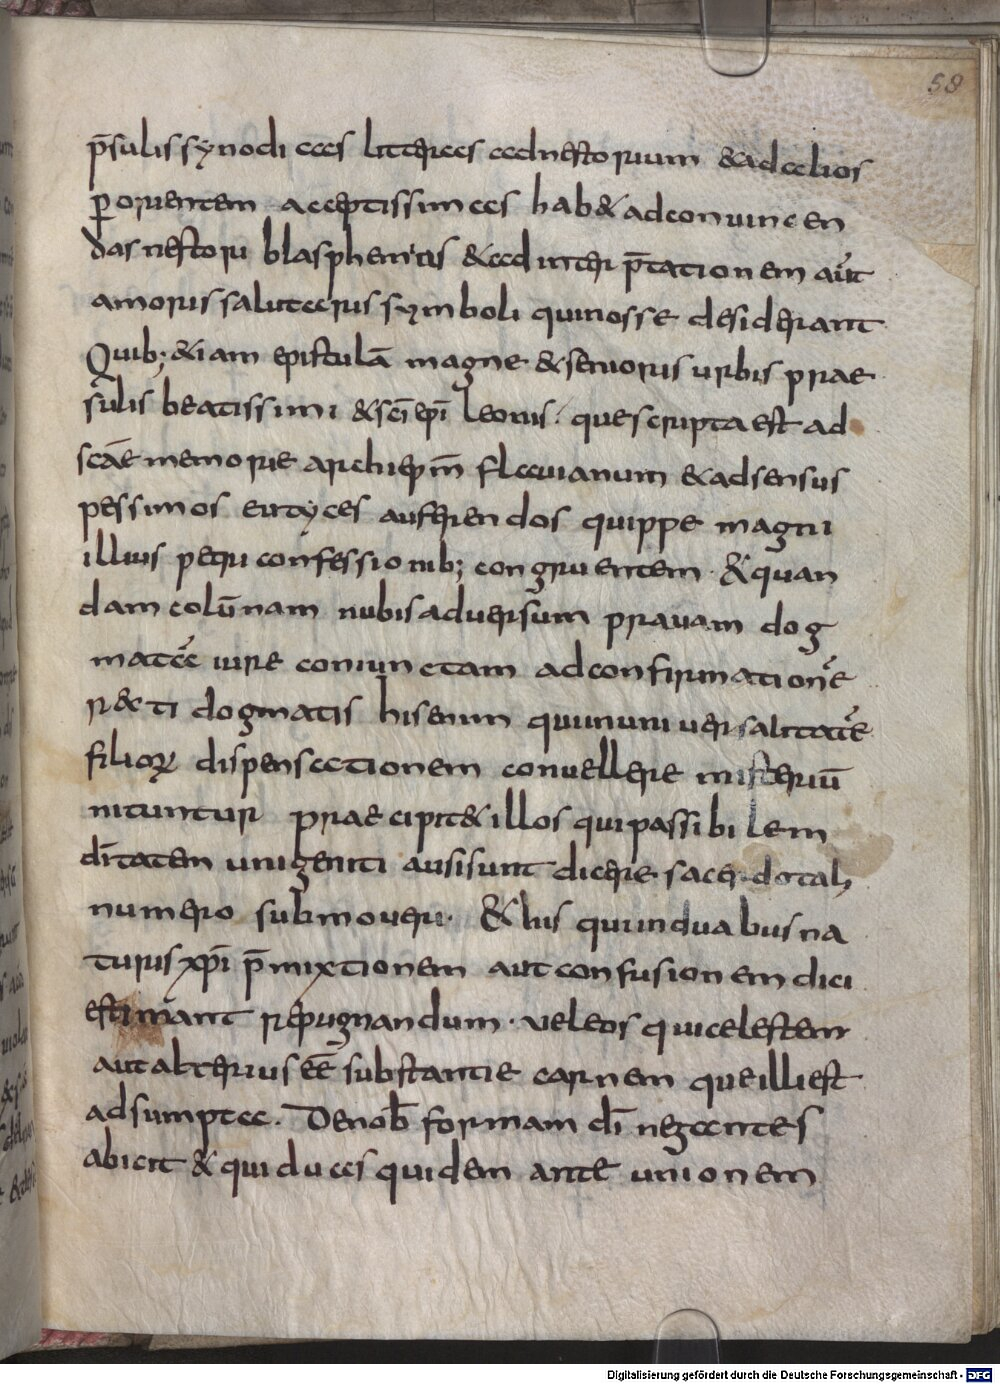 58
p̄sulis synodi eas litteras ad nestorium & ad alios
ꝑ orientem aceptissimas hab& ad conuincen
das nestorii blasphemias & ad inter p̄tationem aūt
amoris salutaris symboli qui nosse desiderant
Quib; &iam epistulā magne & senioris urbis prae
sulis beatissimi & sc̄i epī leonis. que scripta est ad
scāe memorie archiepm̄ flauianum & ad sensus
pessimos eutyces auferendos quippe magni
illius petri confessionib; congruentem & quan
dam colūnam nubis aduersum prauam dog
mate iure coniunctam ad confirmatione
r&ti dogmatis his enim qui in uniuersalitate
filioꝝ dispensationem conuellere misteriū
nituntur praecipit & illos qui passibilem
dītatem unigeniti ausi sunt dicere sacerdotali
numero submoueri. & his qui in duabus na
turis xp̄i p̄mixtionem aut confusionem dici
estimant repugnandum. uel eos qui celestem
aut alterius eē substantie carnem que illi est
adsumpta. De nob̄ formam dī negantes
abicit & qui duas quidem ante unionem
Digitalisierung gefördert durch die Deutsche Forschungsgemeinschaft - DFG